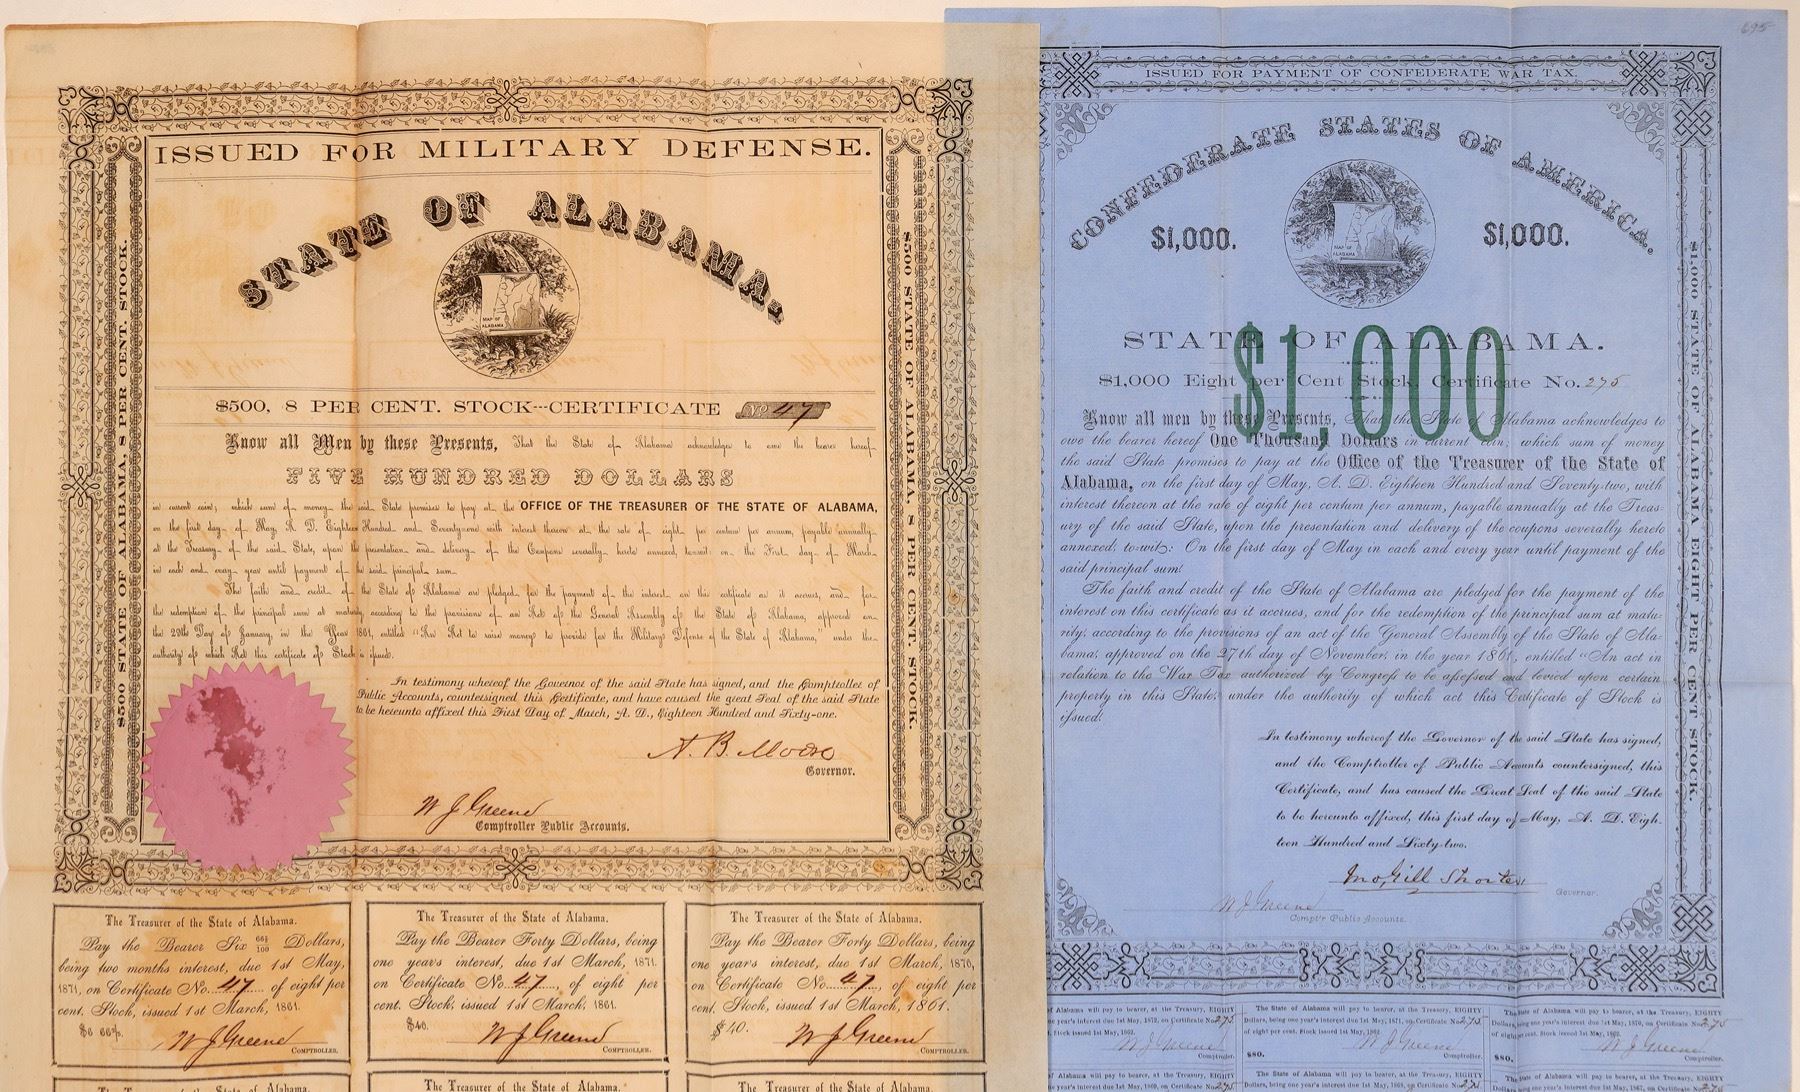 ISSUED FOR MILITARY DEFENSE.
STATE OF ALABAMA.
MAP OF
ALABAMA
$500, 8 PER CENT. STOCK---CERTIFICATE No 47
Know all Men by these Presents, That the State of Alabama acknowledges to owe the bearer hereof
FIVE HUNDRED DOLLARS
in current coin, which sum of money the said State promises to pay at the OFFICE OF THE TREASURER OF THE STATE OF ALABAMA,
on the first day of May, A. D. Eighteen Hundred and Seventy-one with interest thereon at the rate of eight per centum per annum, payable annually
at the Treasury of the said State, upon the presentation and delivery of the Coupons severally hereto annexed, to-wit: on the First day of March
in each and every year until payment of the said principal sum.
The faith and credit of the State of Alabama are pledged for the payment of the interest on this certificate as it accrues, and for
the redemption of the principal sum at maturity according to the provisions of an Act of the General Assembly of the State of Alabama, approved on
the 29th Day of January, in the Year 1861, entitled "An Act to raise money to provide for the Military Defense of the State of Alabama," under the
authority of which Act this certificate of Stock is issued.
In testimony whereof the Governor of the said State has signed, and the Comptroller of
Public Accounts, countersigned this Certificate, and have caused the great Seal of the said State
to be hereunto affixed this First Day of March, A. D., Eighteen Hundred and Sixty-one.
A. B. Moore
Governor.
W J Greene
Comptroller Public Accounts.
$500 STATE OF ALABAMA, 8 PER CENT. STOCK.
$500 STATE OF ALABAMA, 8 PER CENT. STOCK.
The Treasurer of the State of Alabama.
Pay the Bearer Six 66⅔/100 Dollars,
being two months interest, due 1st May,
1871, on Certificate No. 47 of eight per
cent. Stock, issued 1st March, 1861.
$6 66⅔.
W J Greene
COMPTROLLER.
The Treasurer of the State of Alabama.
Pay the Bearer Forty Dollars, being
one year's interest, due 1st March, 1871.
on Certificate No. 47, of eight per
cent. Stock, issued 1st March, 1861.
$40.
W J Greene
COMPTROLLER.
The Treasurer of the State of Alabama.
Pay the Bearer Forty Dollars, being
one year's interest, due 1st March, 1870,
on Certificate No. 47, of eight per
cent. Stock, issued 1st March, 1861.
$40.
W J Greene
COMPTROLLER.
The Treasurer of the State of Alabama.
The Treasurer of the State of Alabama.
The Treasurer of the State of Alabama.
695
ISSUED FOR PAYMENT OF CONFEDERATE WAR TAX.
CONFEDERATE STATES OF AMERICA.
$1,000. $1,000.
MAP OF
ALABAMA
STATE OF ALABAMA.
$1,000
$1,000 Eight per Cent Stock, Certificate No. 275
Know all men by these Presents, That the State of Alabama acknowledges to
owe the bearer hereof One Thousand Dollars in current coin; which sum of money
the said State promises to pay at the Office of the Treasurer of the State of
Alabama, on the first day of May, A. D. Eighteen Hundred and Seventy-two, with
interest thereon at the rate of eight per centum per annum, payable annually at the Treas-
ury of the said State, upon the presentation and delivery of the coupons severally hereto
annexed, to-wit: On the first day of May in each and every year until payment of the
said principal sum.
The faith and credit of the State of Alabama are pledged for the payment of the
interest on this certificate as it accrues, and for the redemption of the principal sum at matu-
rity, according to the provisions of an act of the General Assembly of the State of Ala-
bama, approved on the 27th day of November, in the year 1861, entitled "An act in
relation to the War Tax authorized by Congress to be assessed and levied upon certain
property in this State, under the authority of which act this Certificate of Stock is
issued.
In testimony whereof the Governor of the said State has signed,
and the Comptroller of Public Accounts countersigned, this
Certificate, and has caused the Great Seal of the said State
to be hereunto affixed, this first day of May, A. D. Eigh-
teen Hundred and Sixty-two.
Jno, Gill Shorter
Governor.
W J Greene
Compt'r Public Accounts.
$1,000 STATE OF ALABAMA EIGHT PER CENT STOCK.
of Alabama will pay to bearer, at the Treasury, EIGHTY
one year's interest due 1st May, 1872, on Certificate No. 275
Stock issued 1st May, 1862.
W J Greene
Comptroller.
The State of Alabama will pay to bearer, at the Treasury, EIGHTY
Dollars, being one year's interest due 1st May, 1871, on Certificate No. 275
of eight per cent. Stock issued 1st May, 1862
$80.
W J Greene
Comptroller.
The State of Alabama will pay to bearer, at the Treasury, EIGHTY
Dollars, being one year's interest due 1st May, 1870, on Certificate No. 275
of eight per cent. Stock issued 1st May, 1862.
$80.
W J Greene
Comptroller.
of Alabama will pay to bearer, at the Treasury, EIGHTY
year's interest due 1st May, 1869, on Certificate No. 275
The State of Alabama will pay to bearer, at the Treasury, EIGHTY
Dollars, being one year's interest due 1st May, 1868, on Certificate No. 275
The State of Alabama will pay to bearer, at the Treasury, EIGHTY
Dollars, being one year's interest due 1st May, 1867, on Certificate No.